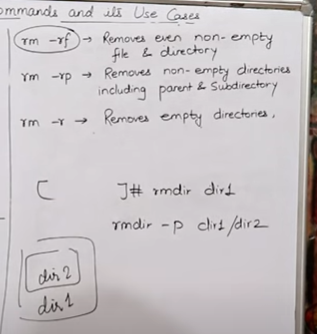 ommands and its Use Cases
rm -rf → Removes even non-empty
file & directory
rm -rp → Removes non-empty directories
including parent & Subdirectory
rm -r → Removes empty directories,
[ ]# rmdir dir1
rmdir -p dir1/dir2
dir2
dir1